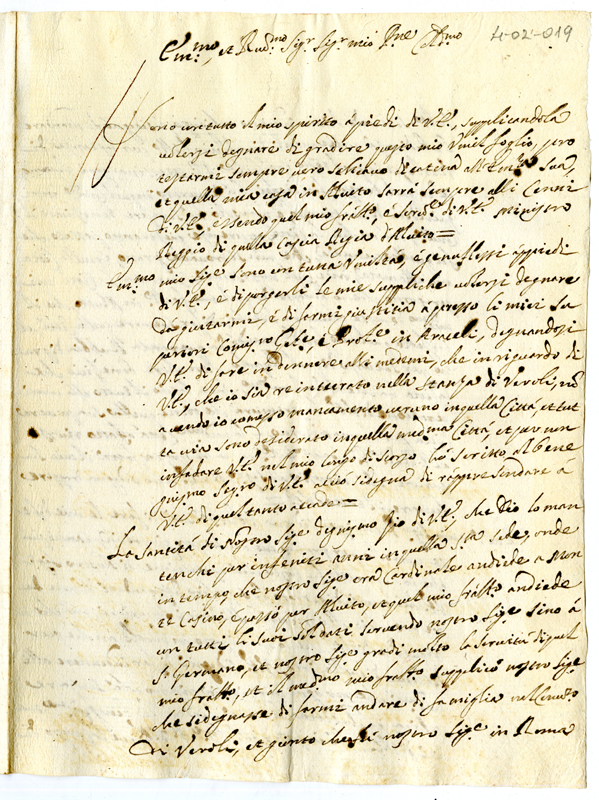 4-02-019
Em.mo, et Rev.mo Sig.r Sig.r mio P.ne Col.mo
Sono con tutto il mio spirito a piedi di V.E., supplicandola
volersi degnare di gradire questo mio Umil foglio, pro
testarmi sempre vero schiavo di catina all'Em.za Sua,
et quella mia casa in Atuito sarrà sempre alli Cenni
di V.E., essendo quel mio fratto, e servi.re di V.E. Ministro
Reggio di quella Cascia Regia d'Atuito =
Em.mo mio Sig.e sono con tutta Umiltà, e genuflessi à piedi
di V.E., è di porgerli le mie suppliche volersi degnare
da giutarmi, è di farmi giustitia àpresso li miei Su
periori Comis.ro Gñle, è Prov.le in Araceli, degnandosi
V.E. di fare indennere alli medemi, che in riguardo di
V.E., che io sia reinterato nella stanza di Veroli, nõ
avendo io comesso mancamento veruno in quella Città, et tut
ta via sono desiderato in quella med.ma Città, et per non
infadare V.E. nel mio lungo discorzo hò scritto al beni
gnismo Seg.ro di V.E. acciò si degna di rappresendare a
V.E. di quel tanto accade =
La Santità di Nostro Sig.e dignismo Zio di V.E., che Dio lo man
tenghi per infeniti anni in quella S.ta Sede, onde
in tempo, che nostro Sig.e era Cardinale andiede a Mon
te Casino, è passò per Atuito, et quel mio fratto andiede
con tutti li suoi soldati servendo nostro Sig.e sino à
S. Germano, et nostro Sig.e gradì molto la servitù di quel
mio fratto, et il medmo mio fratto supplicò nostro Sig.e
che si degnasse di farmi andare di fameglia nel Conv.to
di Veroli, et gionto che fù nostro Sig.e in Roma